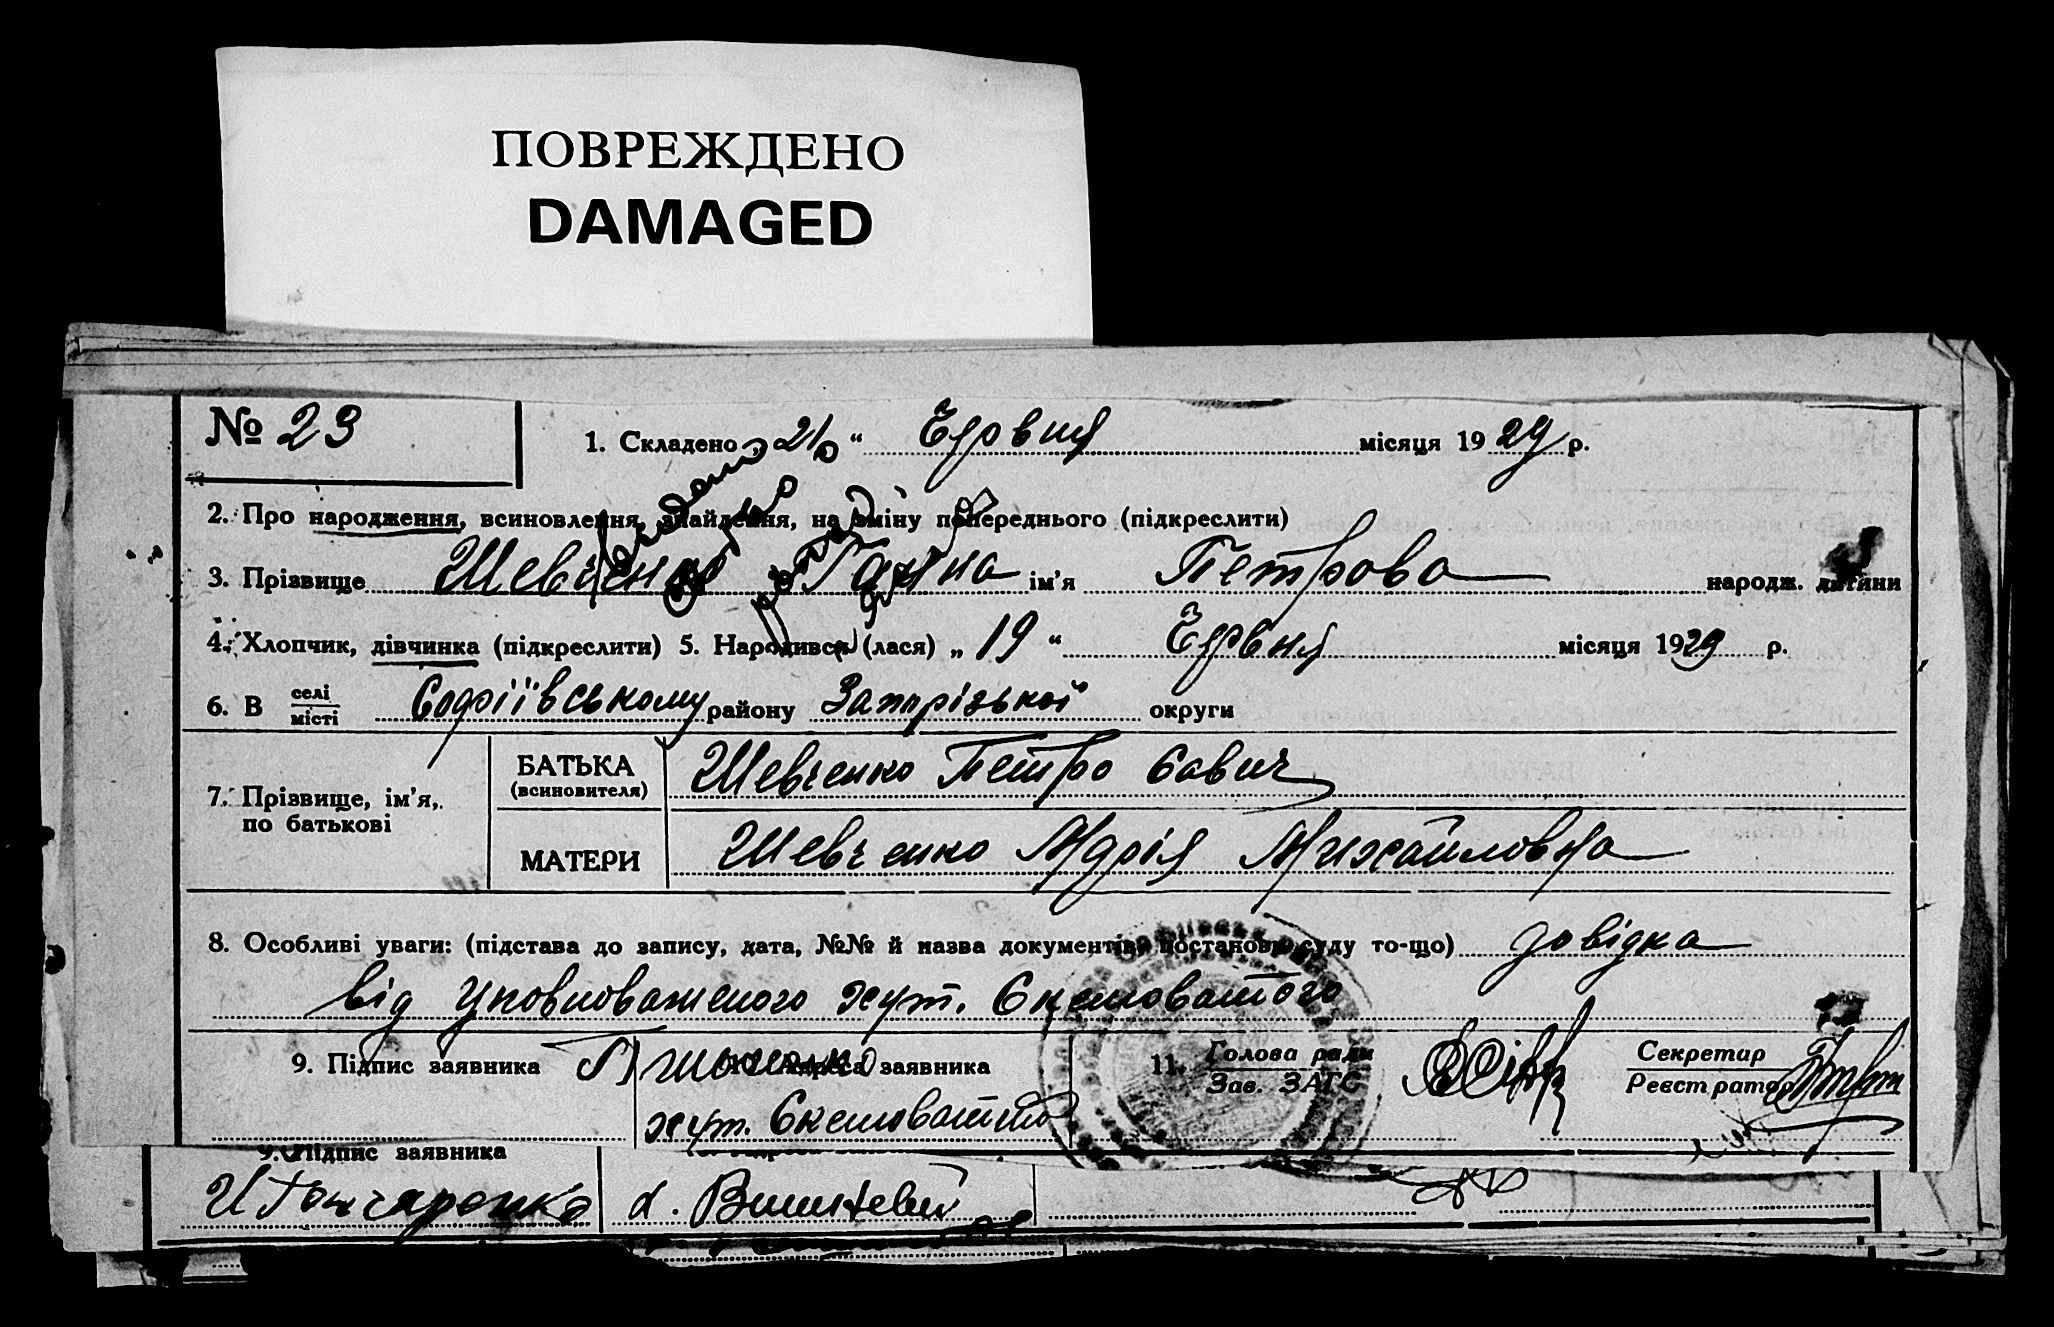 ПОВРЕЖДЕНО
DAMAGED
№ 23
1. Складено „ 21 “ Червня місяця 1929 р.
2. Про народження, всиновлення, знайдення, на зміну попереднього (підкреслити)
3. Прізвище Шевченко Ганна ім'я Петрова народж. дитини
4. Хлопчик, дівчинка (підкреслити) 5. Народився (лася) „ 19 “ Червня місяця 1929 р.
6. В селі місті Софіївському району Запорізької округи
7. Прізвище, ім'я, по батькові
БАТЬКА (всиновителя) Шевченко Петро Савич
МАТЕРИ Шевченко Марія Михайловна
8. Особливі уваги: (підстава до запису, дата, №№ й назва документів, постанови суду то-що) довідка
від уповноваженого хут. Скелюватого
9. Підпис заявника 10. Адреса заявника 11. Голова ради Зав. ЗАГС Секретар Реєстратор
хут.
9. Підпис заявника
И Гончаренко